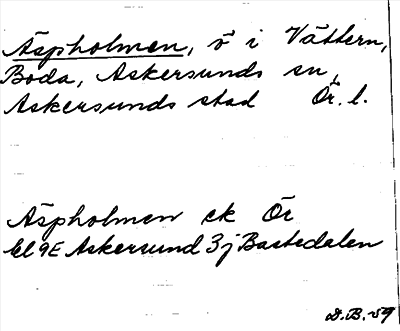 Äspholmen, ö i Vättern,
Boda, Askersunds sn,
Askersunds stad Ör. l.
Äspholmen ek Ör
bl 9E Askersund 3j Bastedalen
D.B. -59